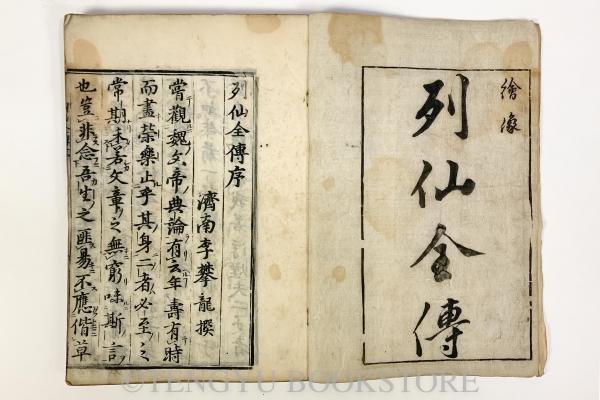 繪像
列仙全傳
列仙全傳序
濟南李攀龍撰
嘗觀魏文帝典論有云年壽有時
而盡榮樂止乎其身二者必至之
常期未若文章之無窮味斯言
也豈非念吾生之匪易不應偕草
©TENGYU BOOKSTORE